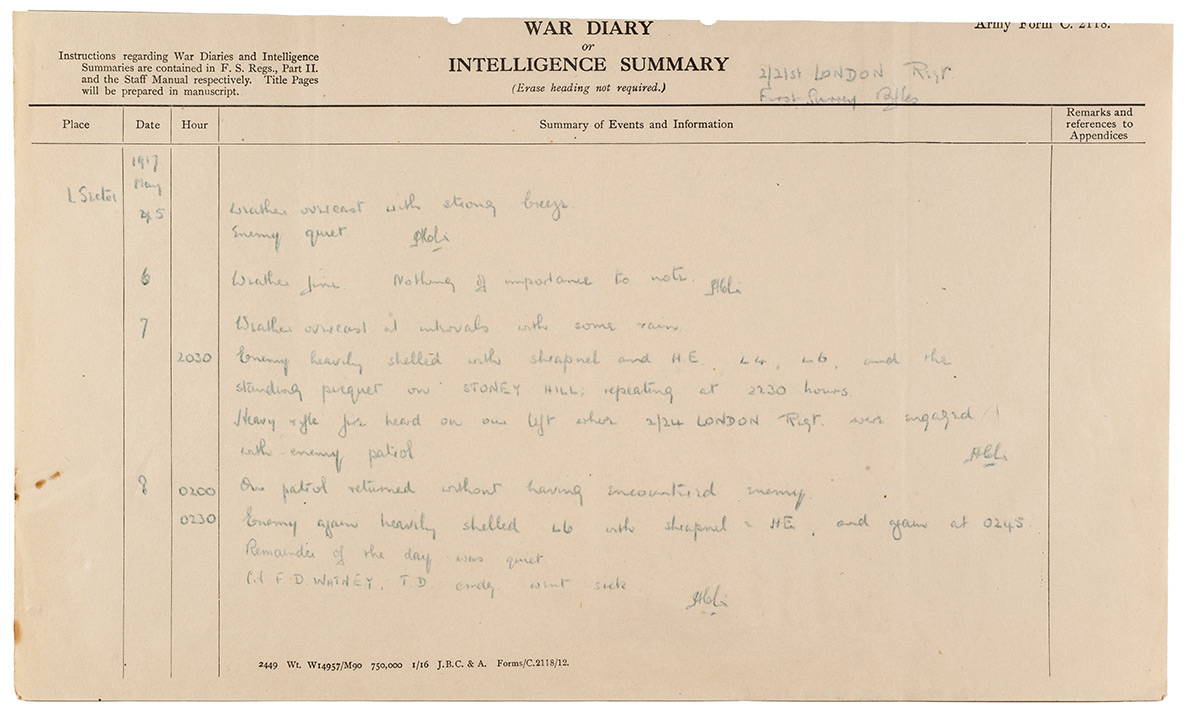 Army Form C. 2118.
WAR DIARY
or
INTELLIGENCE SUMMARY
(Erase heading not required.)
Instructions regarding War Diaries and Intelligence
Summaries are contained in F. S. Regs., Part II.
and the Staff Manual respectively. Title Pages
will be prepared in manuscript.
2/21st LONDON Regt.
First Surrey Rifles
Place Date Hour Summary of Events and Information Remarks and
references to
Appendices
1917
May
L Sector 5 Weather overcast with strong breeze.
Enemy quiet
6 Weather fine. Nothing of importance to note.
7 Weather overcast at intervals with some rain.
2030 Enemy heavily shelled with shrapnel and H.E. L4, L6, and the
standing picquet on STONEY HILL; repeating at 2230 hours.
Heavy rifle fire heard on our left where 2/24 LONDON Regt. were engaged
with enemy patrol
8 0200 Our patrol returned without having encountered enemy.
0230 Enemy again heavily shelled L6 with shrapnel & HE, and again at 0245.
Remainder of the day was quiet
Col F. D. WATNEY, T.D. cmdg went sick
2449 Wt. W14957/M90 750,000 1/16 J.B.C. & A. Forms/C.2118/12.